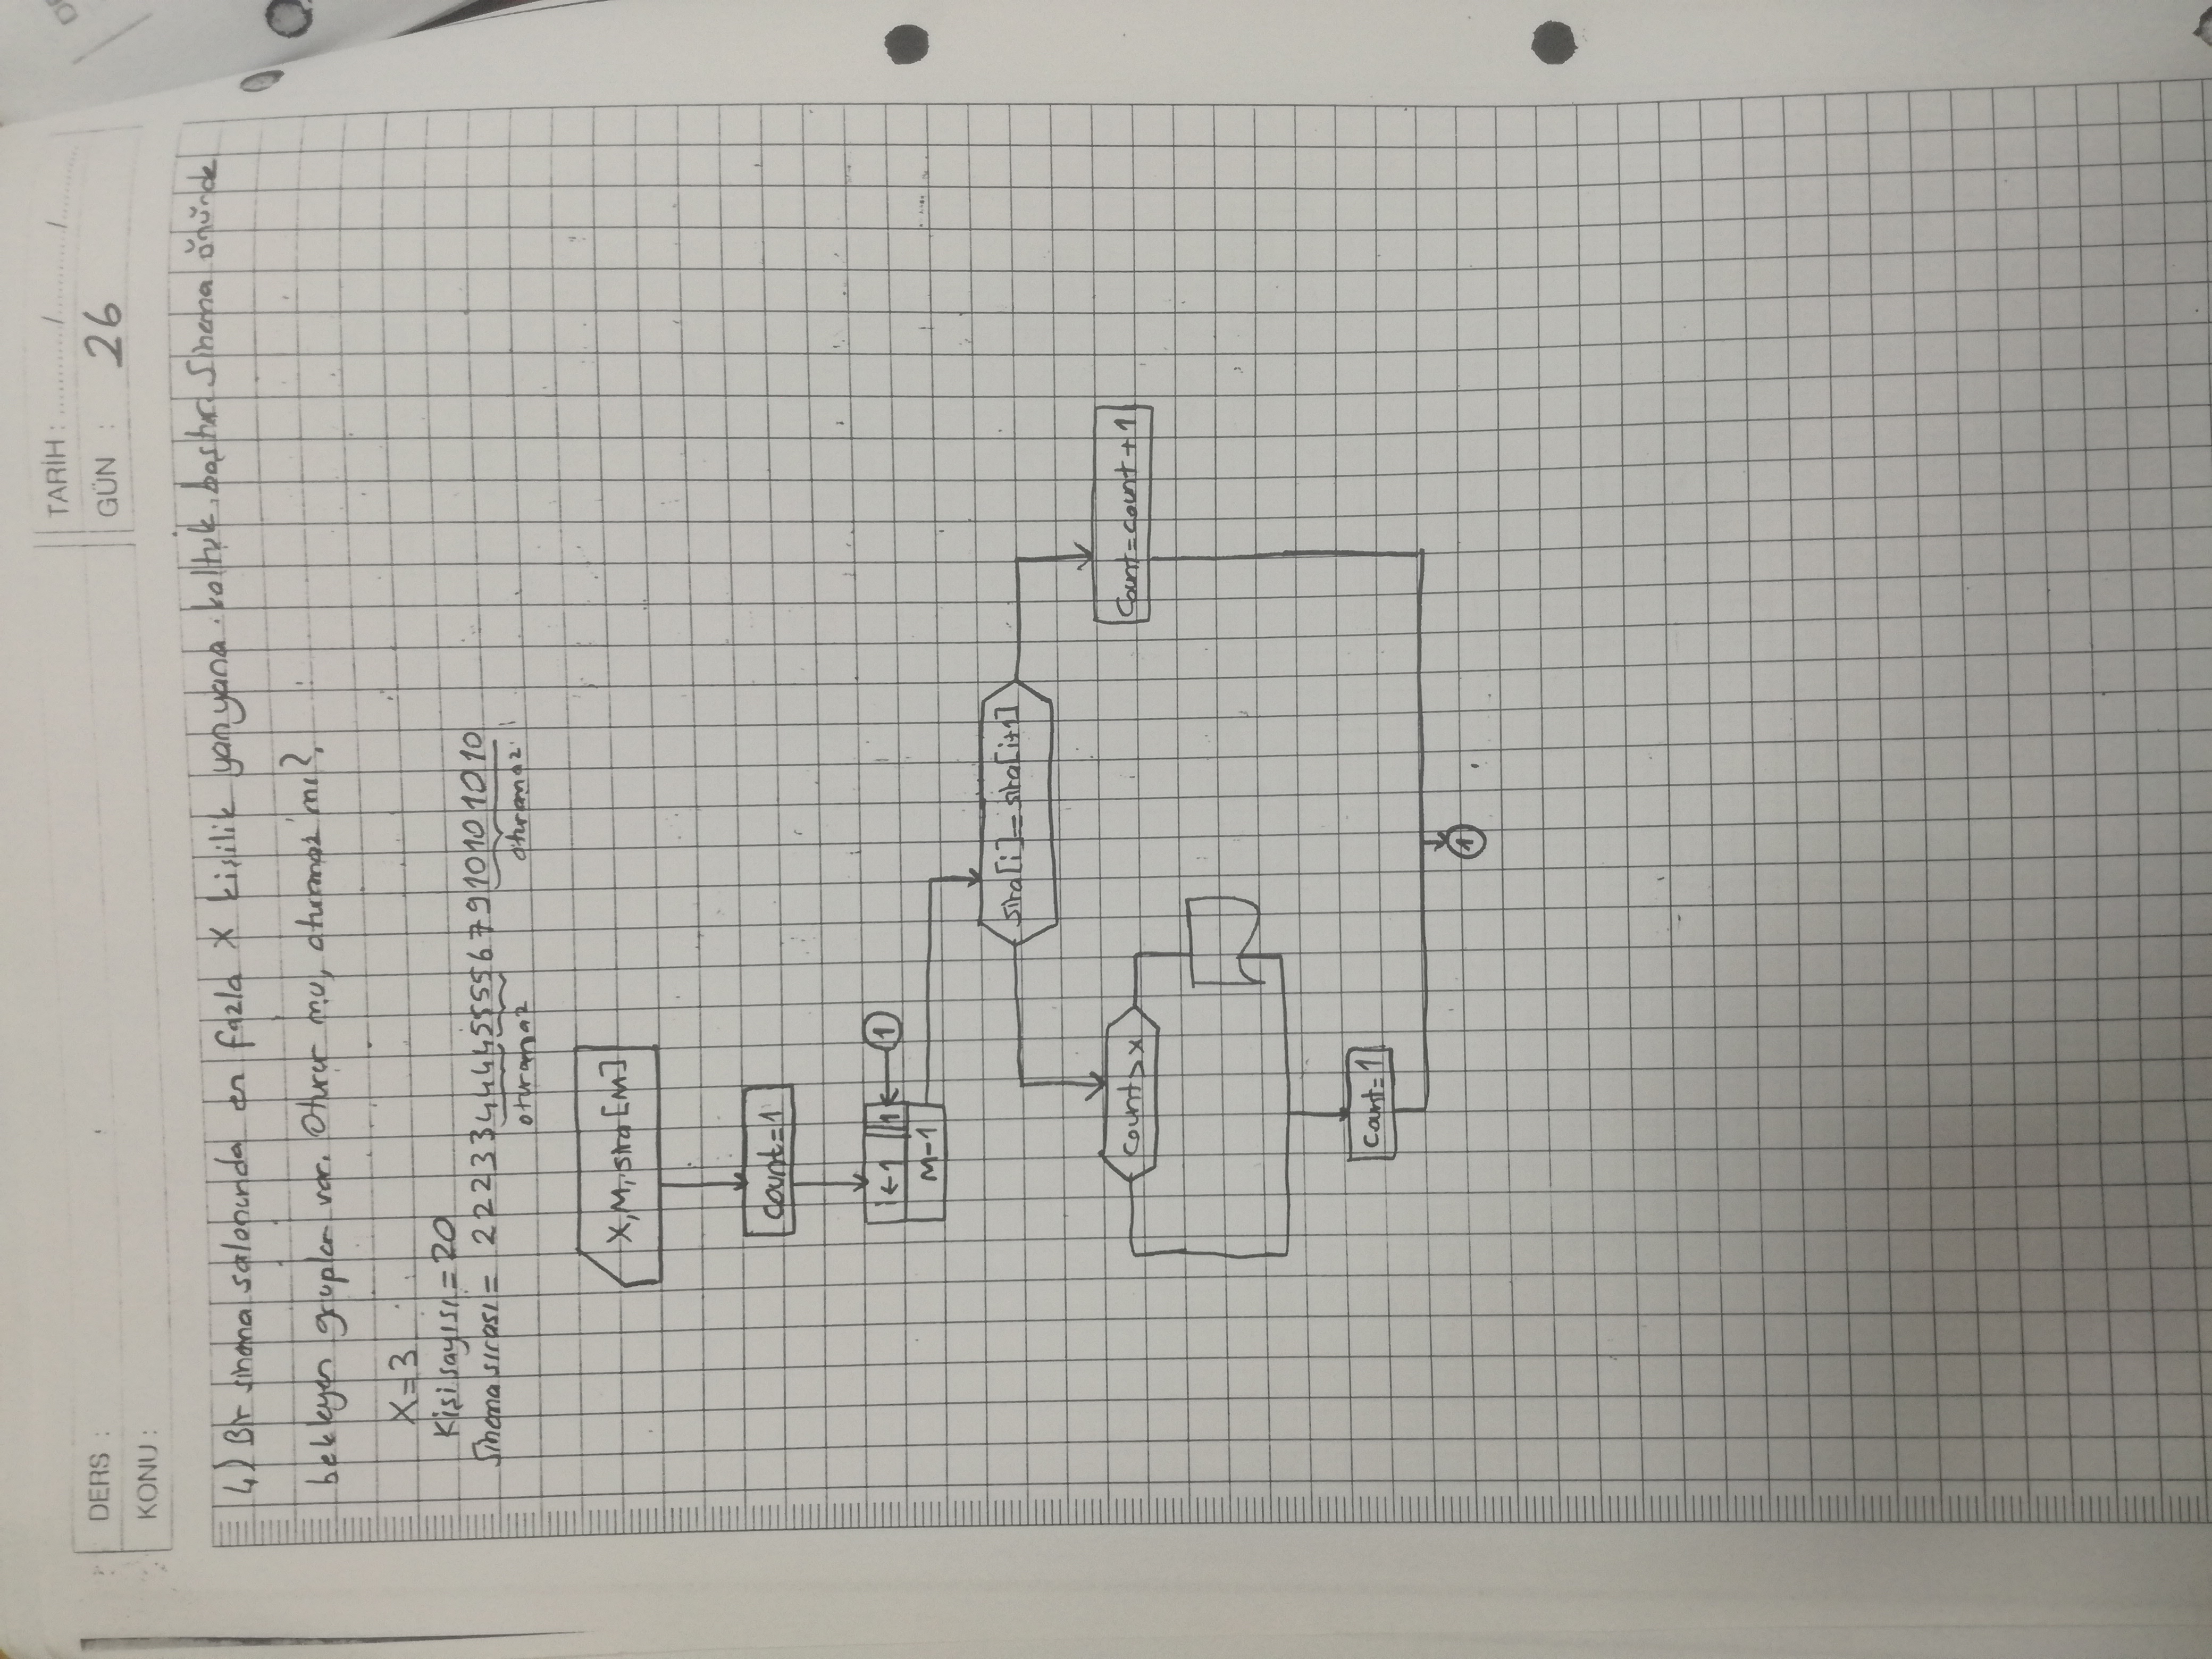 DERS :
KONU :
TARİH : ............/............/............
GÜN : 26
4) Bir sinema salonunda en fazla X kişilik yanyana koltuk boştur. Sinema önünde
bekleyen gruplar var. Oturur mu, oturamaz mı?
X=3
Kişi sayısı = 20
Sinema sırası = 2 2 2 3 3 4 4 4 4 5 5 5 5 6 7 9 10 10 10 10
oturamaz oturamaz
X, M, sıra[M]
count=1
i←1 1 1
M-1
sıra[i]=sıra[i+1]
count>x
count=count+1
count=1
1